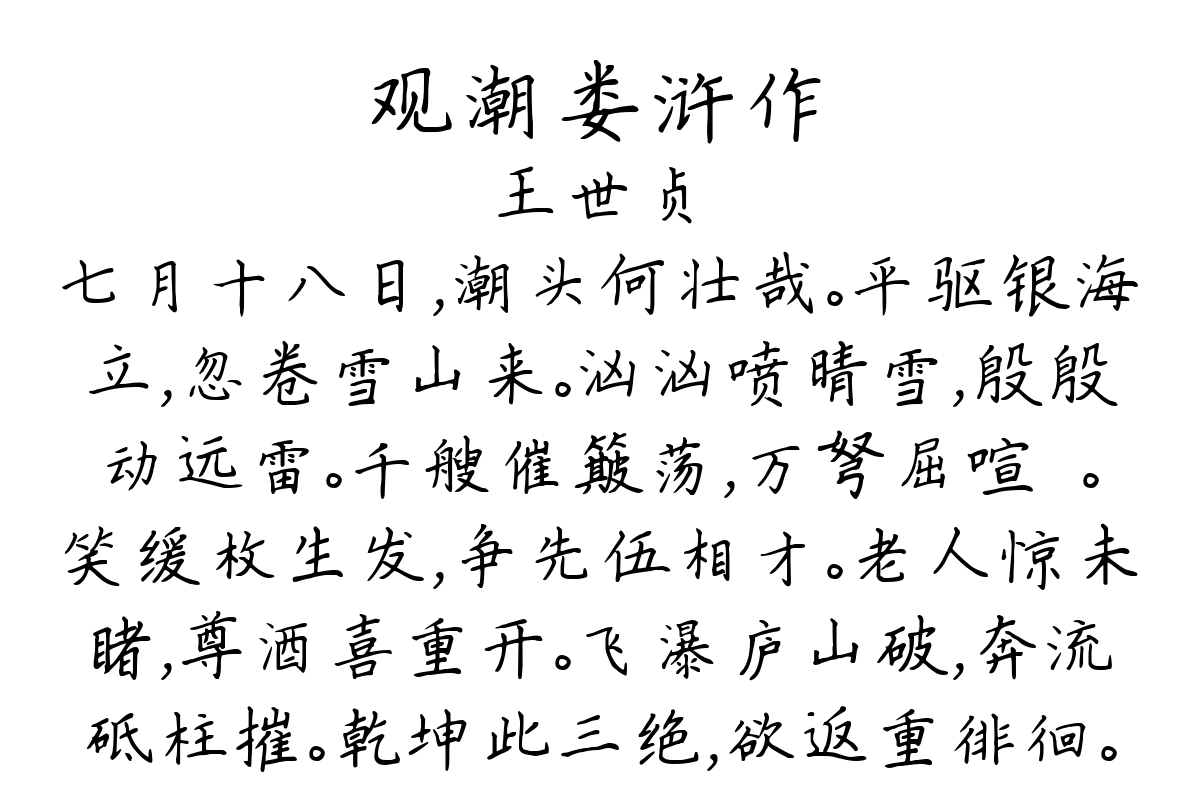 观潮娄浒作
王世贞
七月十八日,潮头何壮哉。平驱银海
立,忽卷雪山来。汹汹喷晴雪,殷殷
动远雷。千艘催簸荡,万弩屈喧 。
笑缓枚生发,争先伍相才。老人惊未
睹,尊酒喜重开。飞瀑庐山破,奔流
砥柱摧。乾坤此三绝,欲返重徘徊。